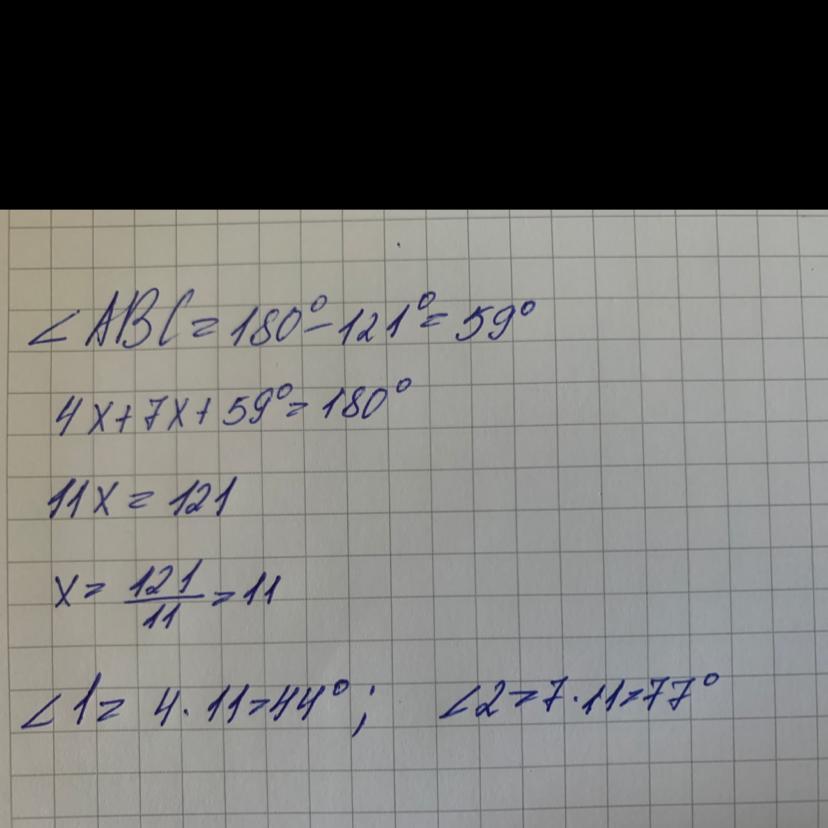 ∠ABC = 180° - 121° = 59°
4x + 7x + 59° = 180°
11x = 121
x = 121/11 = 11
∠1 = 4 · 11 = 44°; ∠2 = 7 · 11 = 77°